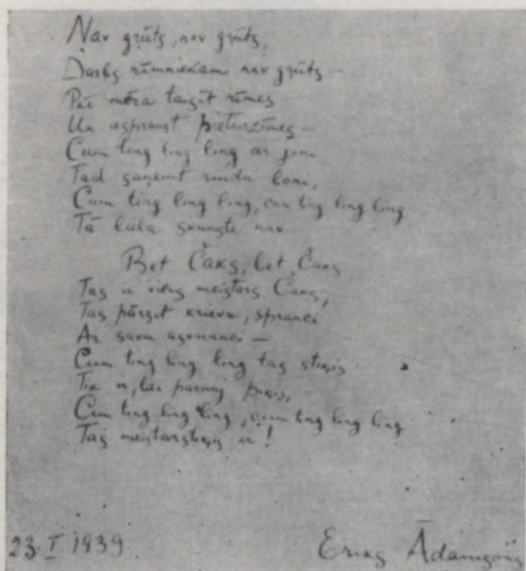 Nav grūts, nav grūts,
Darbs rīmniekam nav grūts —
Pēc mēra taisīt rīmes
Un aspraust pieturzīmes —
Cum ting ling ling ar joni
Tad saņemt naudu loni,
Cum ting ling ling, cum ting ling ling
Tā liela skunste nav.
Bet Čaks, bet Čaks
Tas ir viens meistars Čaks,
Tas pārsit krievu, spranci
Ar savu asonanci —
Cum ting ling ling tas
Tik ir, lai
Cum ting ling ling, cum ting ling ling
Tas ir!
23. I 1939
Ēriks Ādamsons